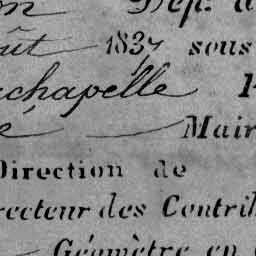 Dép.
ût 1837 sous
chapelle
Mair
Direction de
recteur des Contrib
Géomètre en